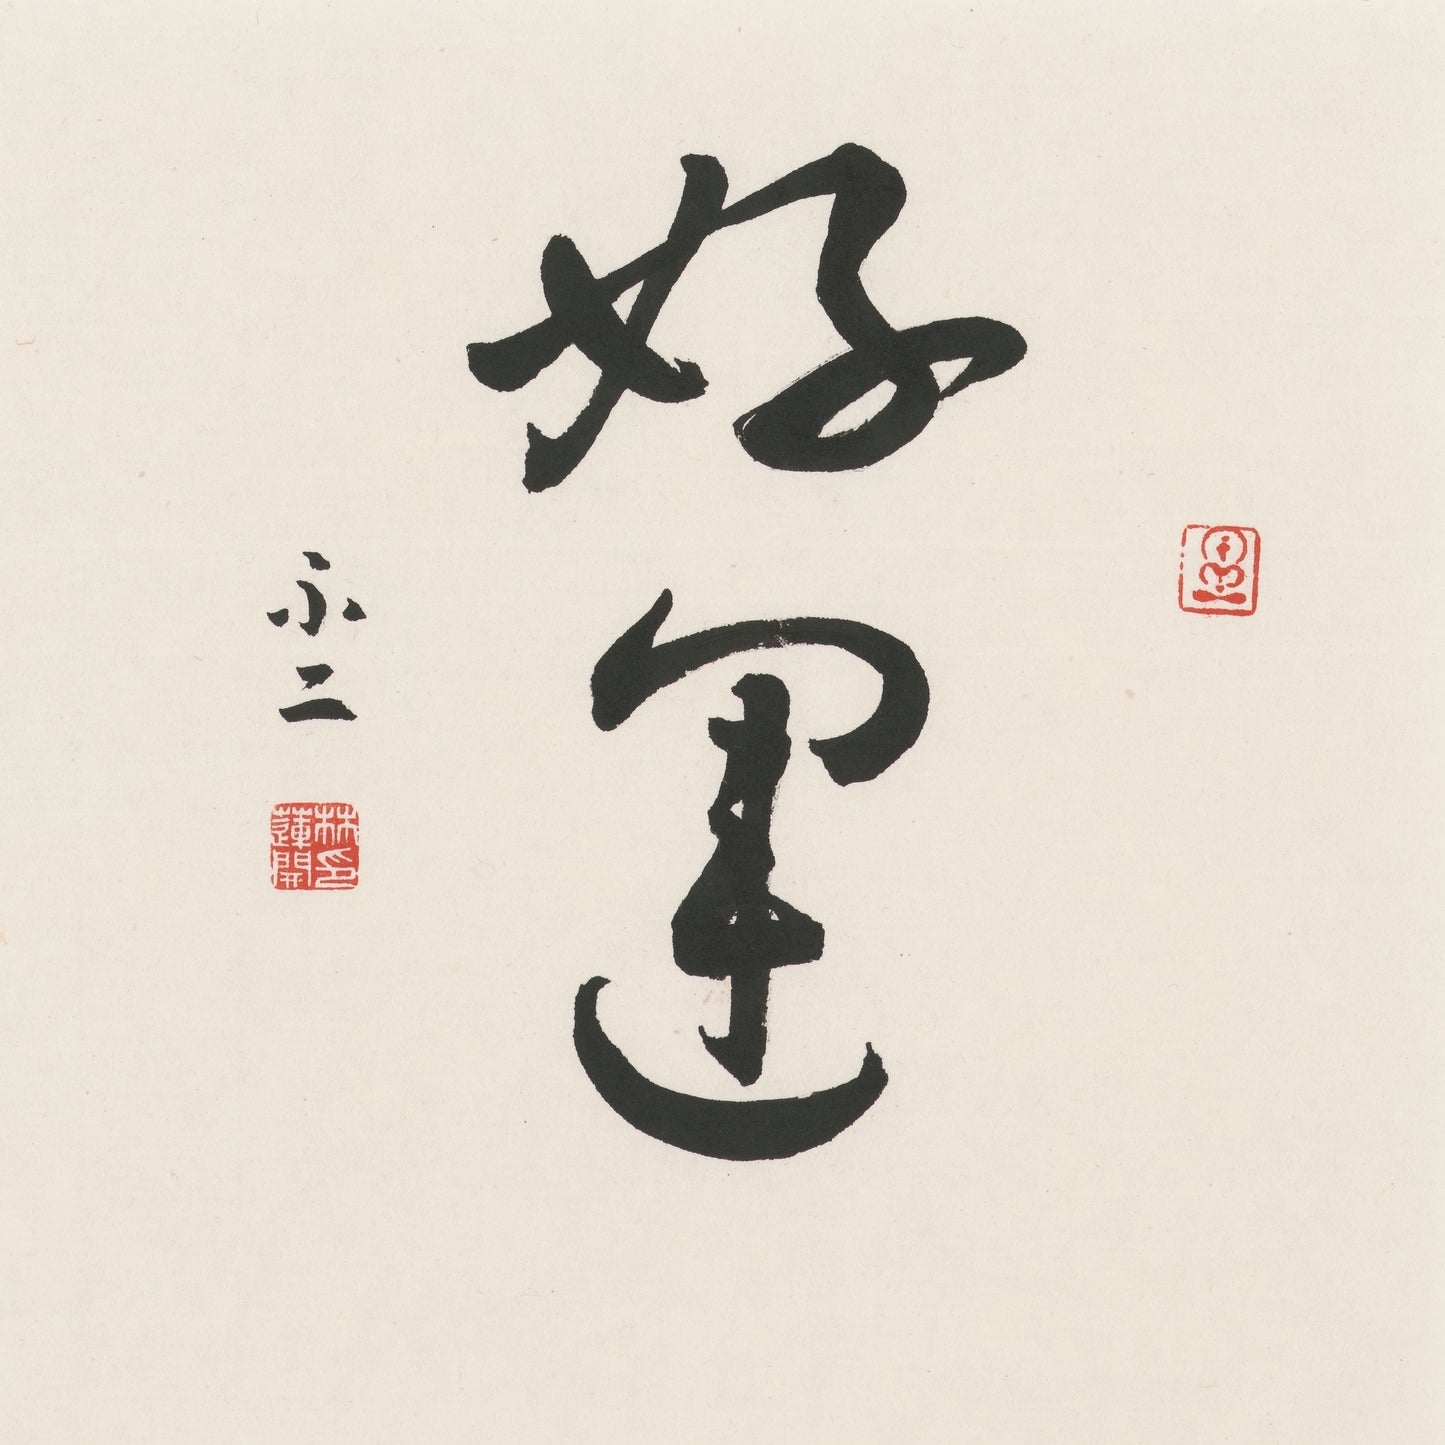 好運
不二
林蓮開印